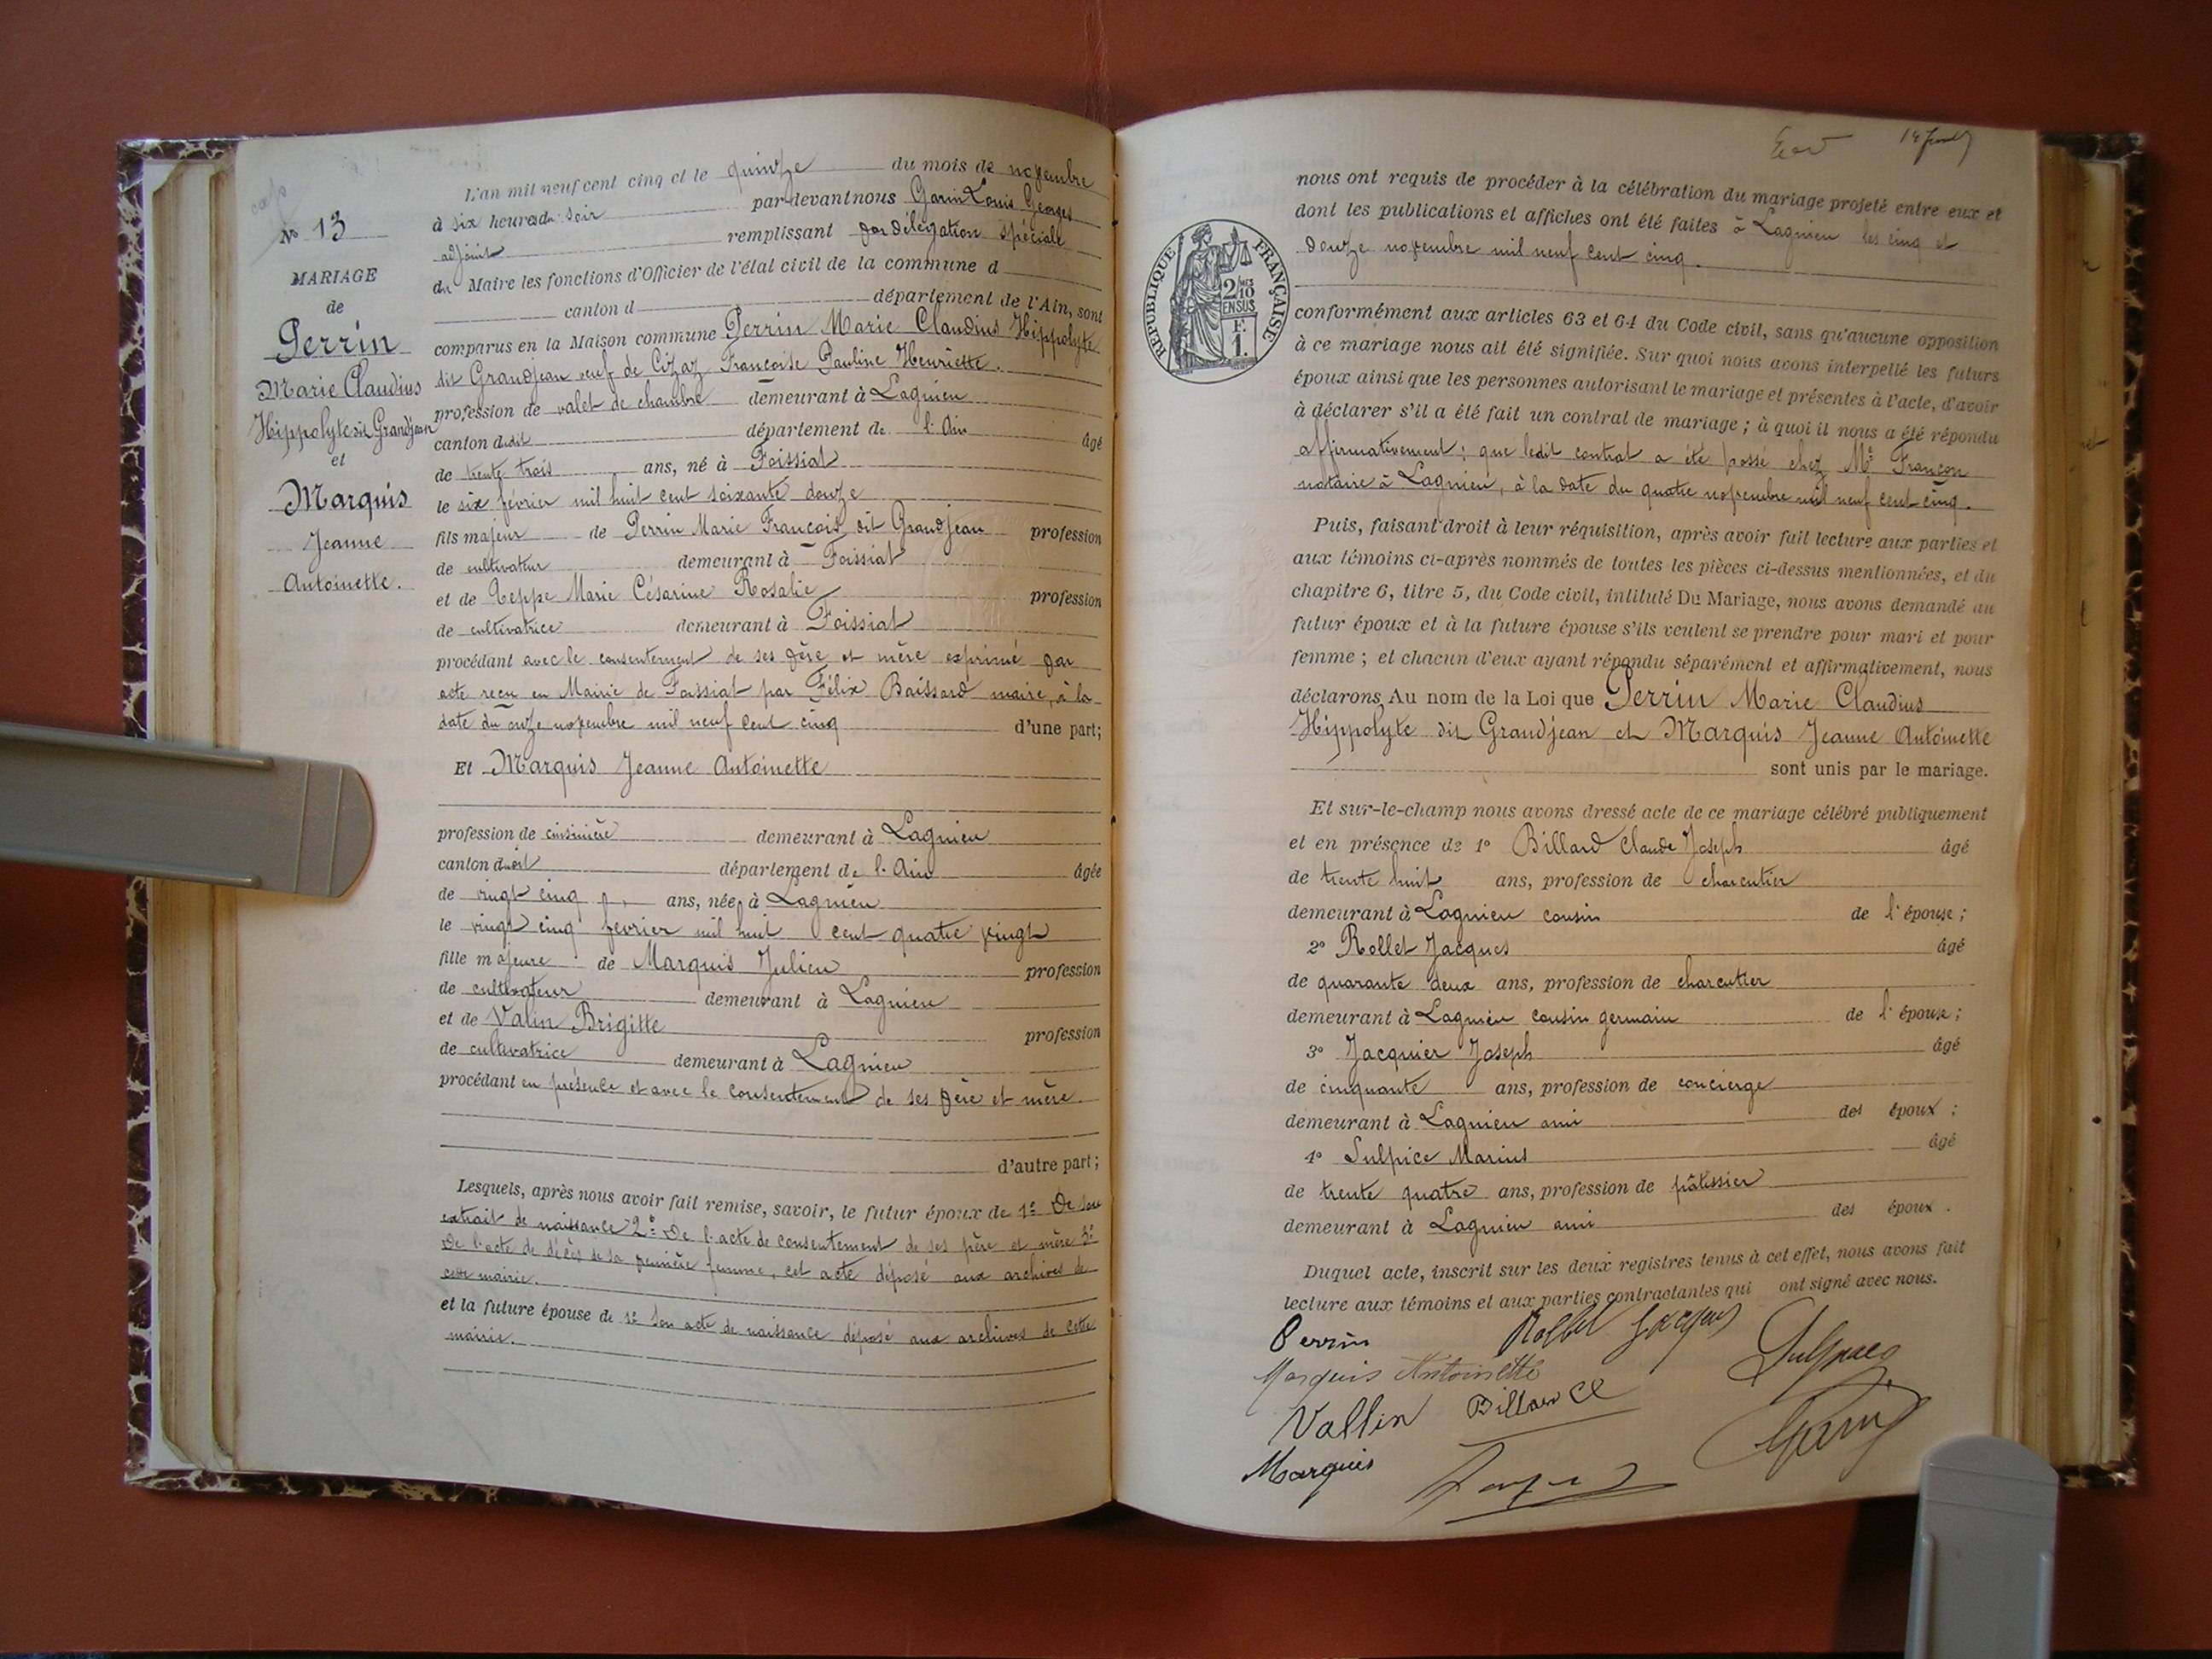 N° 13
MARIAGE
de
Perrin
Marie Claudius
Hippolyte dit Grandjean
et
Marquis
Jeanne
Antoinette.
L'an mil neuf cent cinq et le quinze du mois de novembre
à six heures du soir par devant nous Garin Louis Georges
adjoint remplissant par délégation spéciale
du Maire les fonctions d'Officier de l'état civil de la commune d
canton d département de l'Ain, sont
comparus en la Maison commune Perrin Marie Claudius Hippolyte
dit Grandjean veuf de Cizaz Françoise Pauline Henriette.
profession de valet de chambre demeurant à Lagnieu
canton dudit département de l'Ain âgé
de trente trois ans, né à Foissiat
le six février mil huit cent soixante douze
fils majeur de Perrin Marie François dit Grandjean profession
de cultivateur demeurant à Foissiat
et de Teppe Marie Césarine Rosalie profession
de cultivatrice demeurant à Foissiat
procédant avec le consentement de ses père et mère exprimé par
acte reçu en Mairie de Foissiat par Félix Baissard maire, à la
date du onze novembre mil neuf cent cinq d'une part;
Et Marquis Jeanne Antoinette
profession de cuisinière demeurant à Lagnieu
canton dudit département de l'Ain âgée
de vingt cinq ans, née à Lagnieu
le vingt cinq février mil huit cent quatre vingt
fille majeure de Marquis Julien profession
de cultivateur demeurant à Lagnieu
et de Valin Brigitte profession
de cultivatrice demeurant à Lagnieu
procédant en présence et avec le consentement de ses père et mère.
d'autre part;
Lesquels, après nous avoir fait remise, savoir, le futur époux de 1° De son
extrait de naissance 2° De l'acte de consentement de ses père et mère 3°
De l'acte de décès de sa première femme, cet acte déposé aux archives de
cette mairie.
et la future épouse de 1° Son acte de naissance déposé aux archives de cette
mairie.
nous ont requis de procéder à la célébration du mariage projeté entre eux et
dont les publications et affiches ont été faites à Lagnieu les cinq et
douze novembre mil neuf cent cinq.
RÉPUBLIQUE FRANÇAISE
2/10 EN SUS
F.
1.
conformément aux articles 63 et 64 du Code civil, sans qu'aucune opposition
à ce mariage nous ait été signifiée. Sur quoi nous avons interpellé les futurs
époux ainsi que les personnes autorisant le mariage et présentes à l'acte, d'avoir
à déclarer s'il a été fait un contrat de mariage ; à quoi il nous a été répondu
affirmativement ; que ledit contrat a été passé chez Me Françon
notaire à Lagnieu, à la date du quatre novembre mil neuf cent cinq.
Puis, faisant droit à leur réquisition, après avoir fait lecture aux parties et
aux témoins ci-après nommés de toutes les pièces ci-dessus mentionnées, et du
chapitre 6, titre 5, du Code civil, intitulé Du Mariage, nous avons demandé au
futur époux et à la future épouse s'ils veulent se prendre pour mari et pour
femme ; et chacun d'eux ayant répondu séparément et affirmativement, nous
déclarons Au nom de la Loi que Perrin Marie Claudius
Hippolyte dit Grandjean et Marquis Jeanne Antoinette
sont unis par le mariage.
Et sur-le-champ nous avons dressé acte de ce mariage célébré publiquement
et en présence de 1° Billard Claude Joseph âgé
de trente huit ans, profession de charcutier
demeurant à Lagnieu cousin de l'épouse ;
2° Rollet Jacques âgé
de quarante deux ans, profession de charcutier
demeurant à Lagnieu cousin germain de l'épouse ;
3° Jacquier Joseph âgé
de cinquante ans, profession de concierge
demeurant à Lagnieu ami des époux ;
4° Sulpice Marius âgé
de trente quatre ans, profession de pâtissier
demeurant à Lagnieu ami des époux.
Duquel acte, inscrit sur les deux registres tenus à cet effet, nous avons fait
lecture aux témoins et aux parties contractantes qui ont signé avec nous.
Perrin Rollet Jacques
Marquis Antoinette Sulpice
Vallin Billard Cl
Garin
Marquis